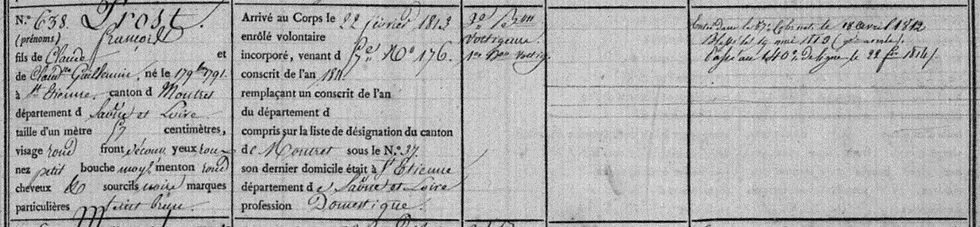 N.º 638. Prost.
(prénoms) françois
fils de Claude et
de Claud.ne Guillemin, né le 17 9bre 1791.
à St Etienne. canton d Montret
département d Saône et Loire
taille d'un mètre 57 centimètres,
visage rond front découv. yeux roux
nez petit bouche moy.e menton rond
cheveux & sourcils noirs marques
particulières teint brun.
Arrivé au Corps le 22 février 1813
enrôlé volontaire
incorporé, venant d N.º 176.
conscrit de l'an 1811
remplaçant un conscrit de l'an
du département d
compris sur la liste de désignation du canton
d e Montret sous le N.º 37
son dernier domicile était à St Etienne
département d e Saône et Loire
profession Domestique.
2e Bon
Voltigeurs
Voltig.
le 18 avril 1812
Blessé le 19 mai 1813
Passé au de ligne le 22 1814